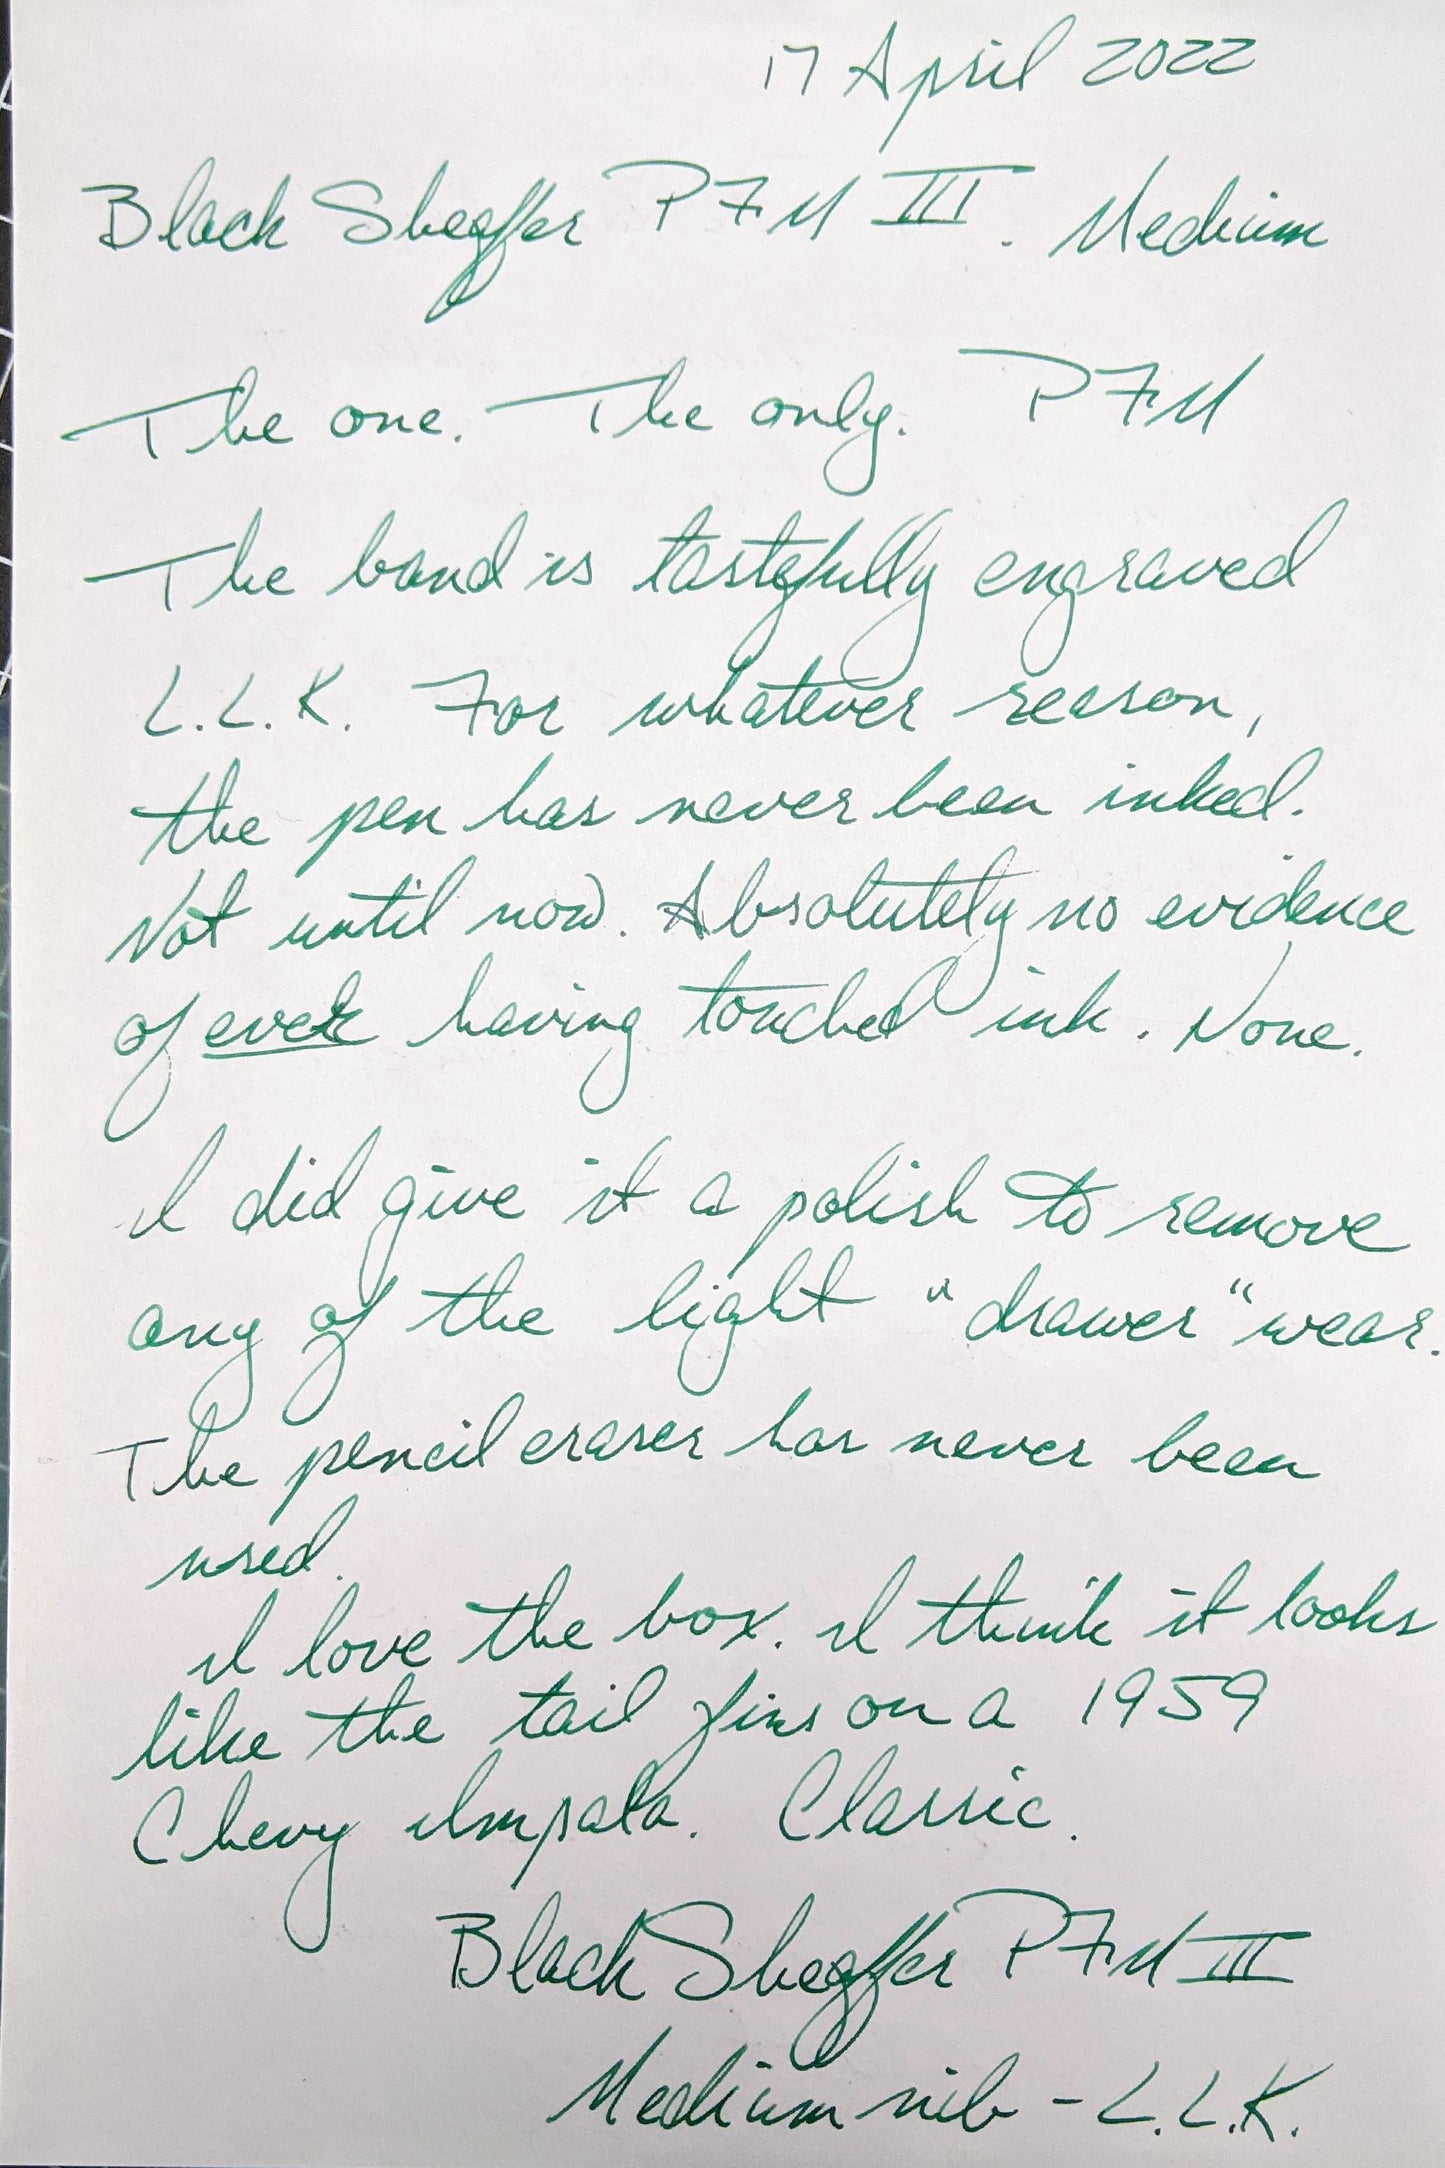 17 April 2022
Black Sheaffer PFM III. Medium
The one. The only. PFM
The band is tastefully engraved
L.L.K. For whatever reason,
the pen has never been inked.
Not until now. Absolutely no evidence
of ever having touched ink. None.
I did give it a polish to remove
any of the light "drawer" wear.
The pencil eraser has never been
used.
I love the box. I think it looks
like the tail fins on a 1959
Chevy Impala. Classic.
Black Sheaffer PFM III
Medium nib - L.L.K.